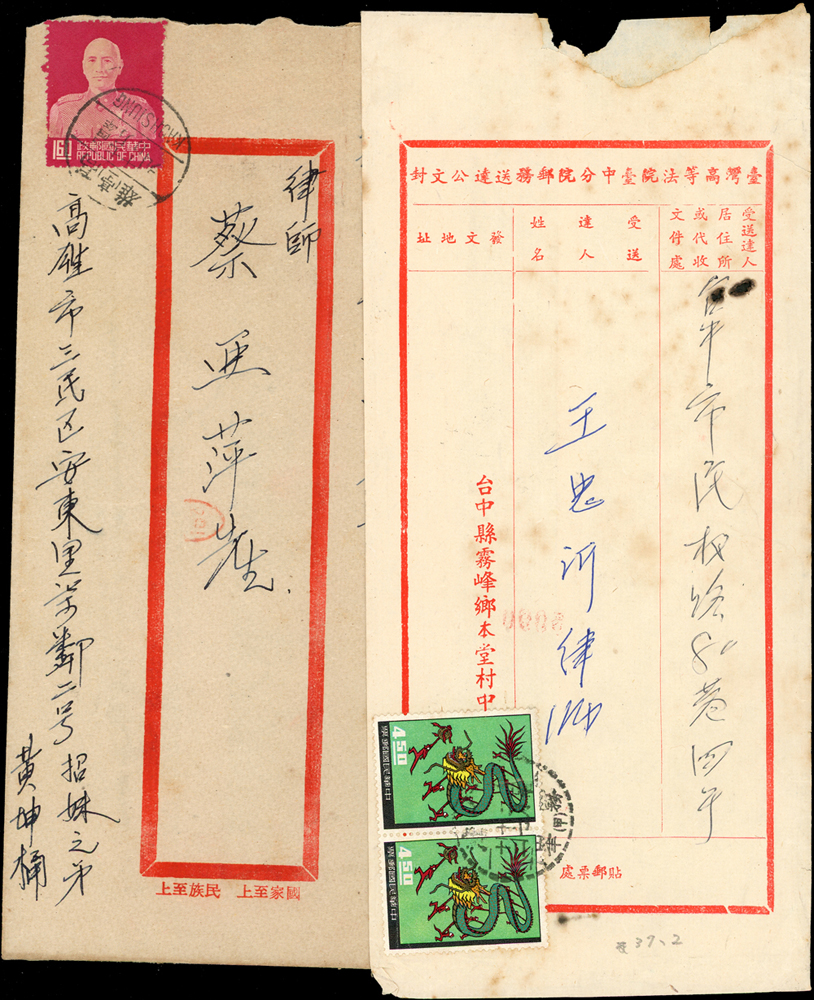 160
中華民國郵政
REPUBLIC OF CHINA
KAOHSIUNG
高雄
律師
蔡亞萍先生
高雄市三民区安東里
鄰二号招妹之弟
黃坤桶
國家至上 民族至上
臺灣高等法院臺中分院郵務送達公文封
受送達人
居住所
或代收
文件處
受送
達人
姓名
發文地址
台中市民权路
巷四号
王忠沂律師
台中縣霧峰鄉本堂村中
貼郵票處
4.50
中華民國郵票
4.50
中華民國郵票
37、2